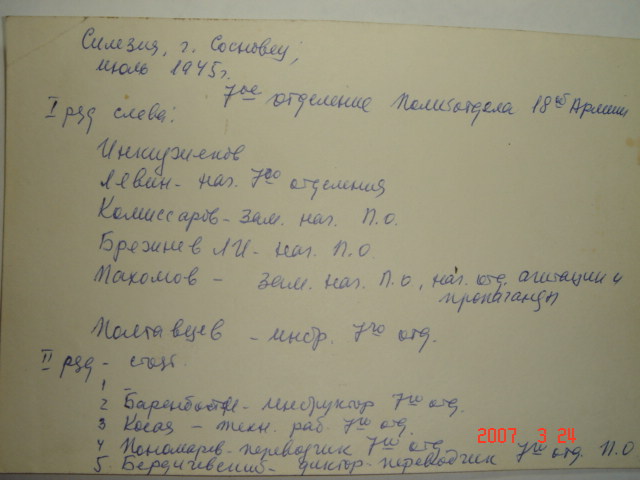 Силезия, г. Сосновец,
июль 1945г.
7ое отделение Политотдела 18ой Армии
I ряд слева:
Инкижеков
Левин - нач. 7го отделения
Комиссаров - зам. нач. П.О.
Брежнев ЛИ - нач. П.О.
Пахомов - зам. нач. П.О, нач. отд. агитации и
пропаганды
Полтавцев - инстр. 7го отд.
II ряд - стоят.
1 -
2 - инструктор 7го отд.
3 Косая - техн. раб. 7го отд.
4 Пономарев - переводчик 7го отд
5. Бердичевский - диктор-переводчик 7го отд. П.О
2007 3 24